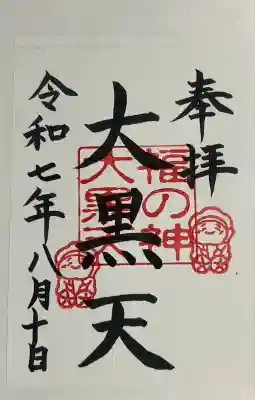 奉拝
福の神
大黒天
大黒天
令和七年八月十日